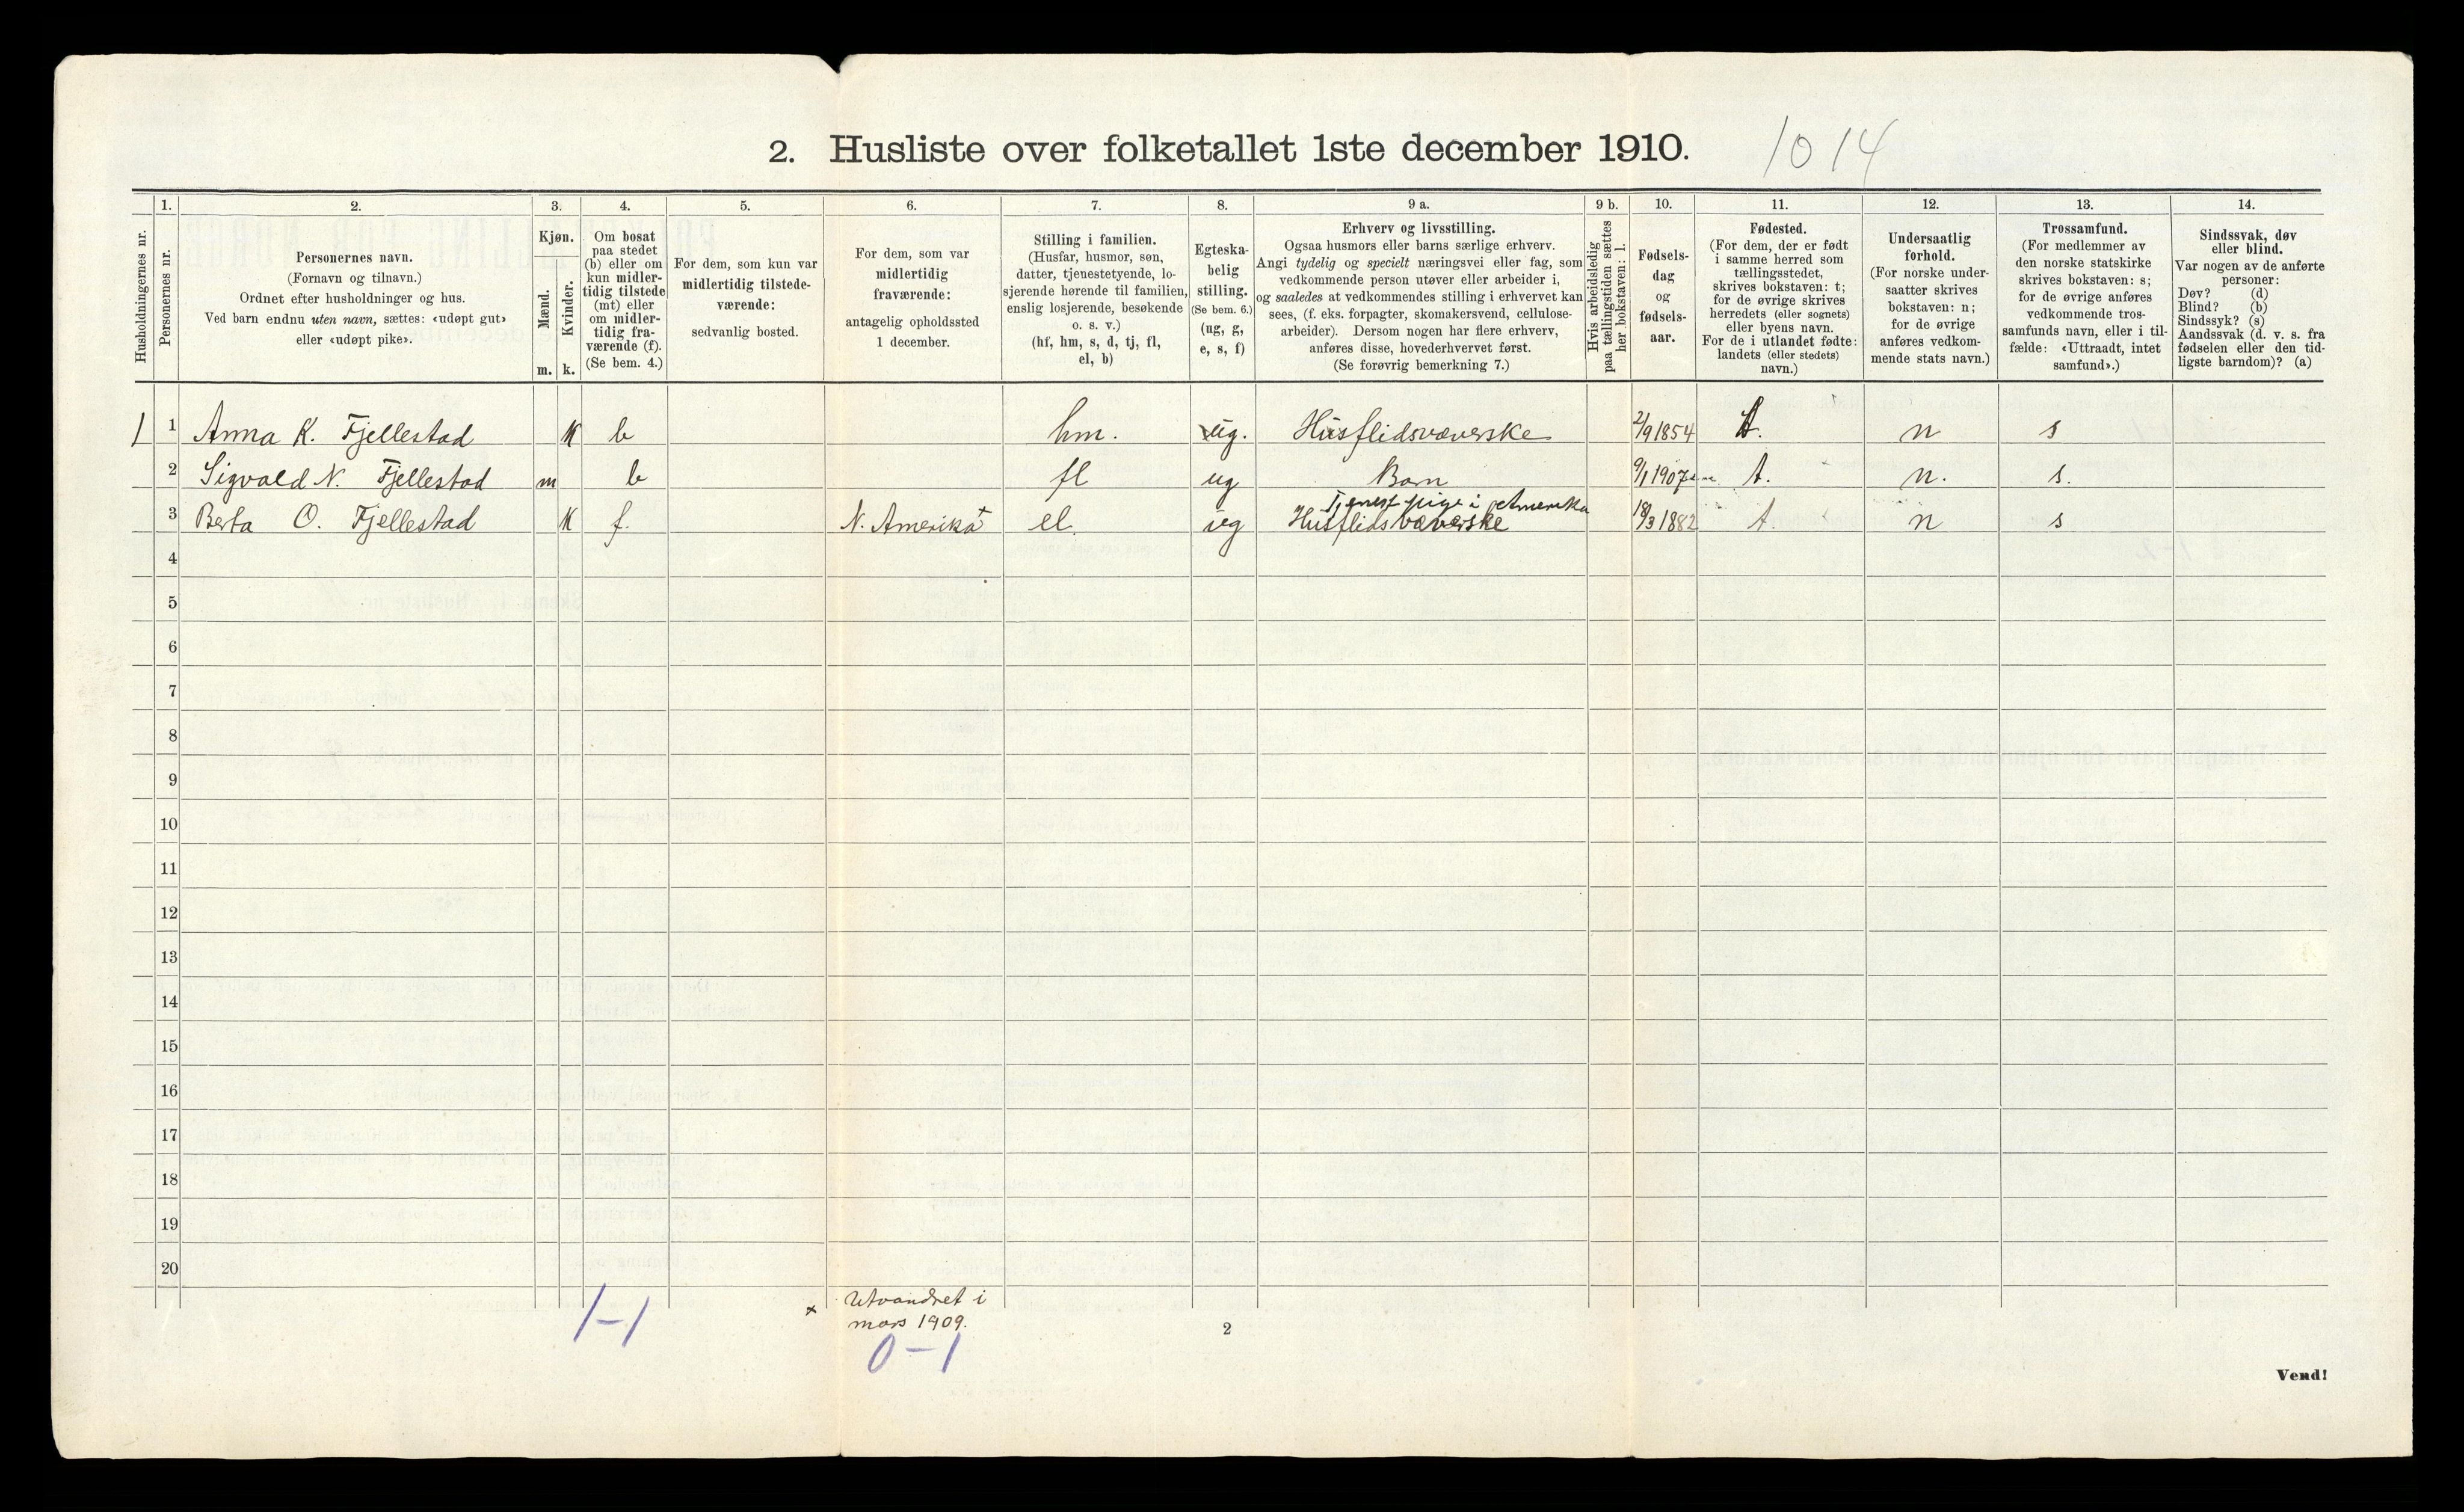 2. Husliste over folketallet 1ste december 1910.
1014
Husholdningernes nr.
1.
Personernes nr.
2.
Personernes navn.
(Fornavn og tilnavn.)
Ordnet efter husholdninger og hus.
Ved barn endnu uten navn, sættes: «udøpt gut»
eller «udøpt pike».
3.
Kjøn.
Mænd.
Kvinder.
m. k.
4.
Om bosat
paa stedet
(b) eller om
kun midler-
tidig tilstede
(mt) eller
om midler-
tidig fra-
værende (f).
(Se bem. 4.)
5.
For dem, som kun var
midlertidig tilstede-
værende:
sedvanlig bosted.
6.
For dem, som var
midlertidig
fraværende:
antagelig opholdssted
1 december.
7.
Stilling i familien.
(Husfar, husmor, søn,
datter, tjenestetyende, lo-
sjerende hørende til familien,
enslig losjerende, besøkende
o. s. v.)
(hf, hm, s, d, tj, fl,
el, b)
8.
Egteska-
belig
stilling.
(Se bem. 6.)
(ug, g,
e, s, f)
9 a.
Erhverv og livsstilling.
Ogsaa husmors eller barns særlige erhverv.
Angi tydelig og specielt næringsvei eller fag, som
vedkommende person utøver eller arbeider i,
og saaledes at vedkommendes stilling i erhvervet kan
sees, (f. eks. forpagter, skomakersvend, cellulose-
arbeider). Dersom nogen har flere erhverv,
anføres disse, hovederhvervet først.
(Se forøvrig bemerkning 7.)
9 b.
Hvis arbeidsledig
paa tællingstiden sættes
her bokstaven: l.
10.
Fødsels-
dag
og
fødsels-
aar.
11.
Fødested.
(For dem, der er født
i samme herred som
tællingsstedet,
skrives bokstaven: t;
for de øvrige skrives
herredets (eller sognets)
eller byens navn.
For de i utlandet fødte:
landets (eller stedets)
navn.)
12.
Undersaatlig
forhold.
(For norske under-
saatter skrives
bokstaven: n;
for de øvrige
anføres vedkom-
mende stats navn.)
13.
Trossamfund.
(For medlemmer av
den norske statskirke
skrives bokstaven: s;
for de øvrige anføres
vedkommende tros-
samfunds navn, eller i til-
fælde: «Uttraadt, intet
samfund».)
14.
Sindssvak, døv
eller blind.
Var nogen av de anførte
personer:
Døv? (d)
Blind? (b)
Sindssyk? (s)
Aandssvak (d. v. s. fra
fødselen eller den tid-
ligste barndom)? (a)
1 1 Anna K. Fjellestad K b hm. ug. Husflidsvæverske 2/9 1854 t. n s
2 Sigvald N. Fjellestad m b fl ug Barn 9/1 1907 t. n. s.
Tjenestpige i Amerika
3 Berta O. Fjellestad K f. N. Amerika + el. ug Husflidsvæverske 18/3 1882 t. n s
4
5
6
7
8
9
10
11
12
13
14
15
16
17
18
19
20
1-1
x Utvandret i
mars 1909.
0-1
2
Vend!